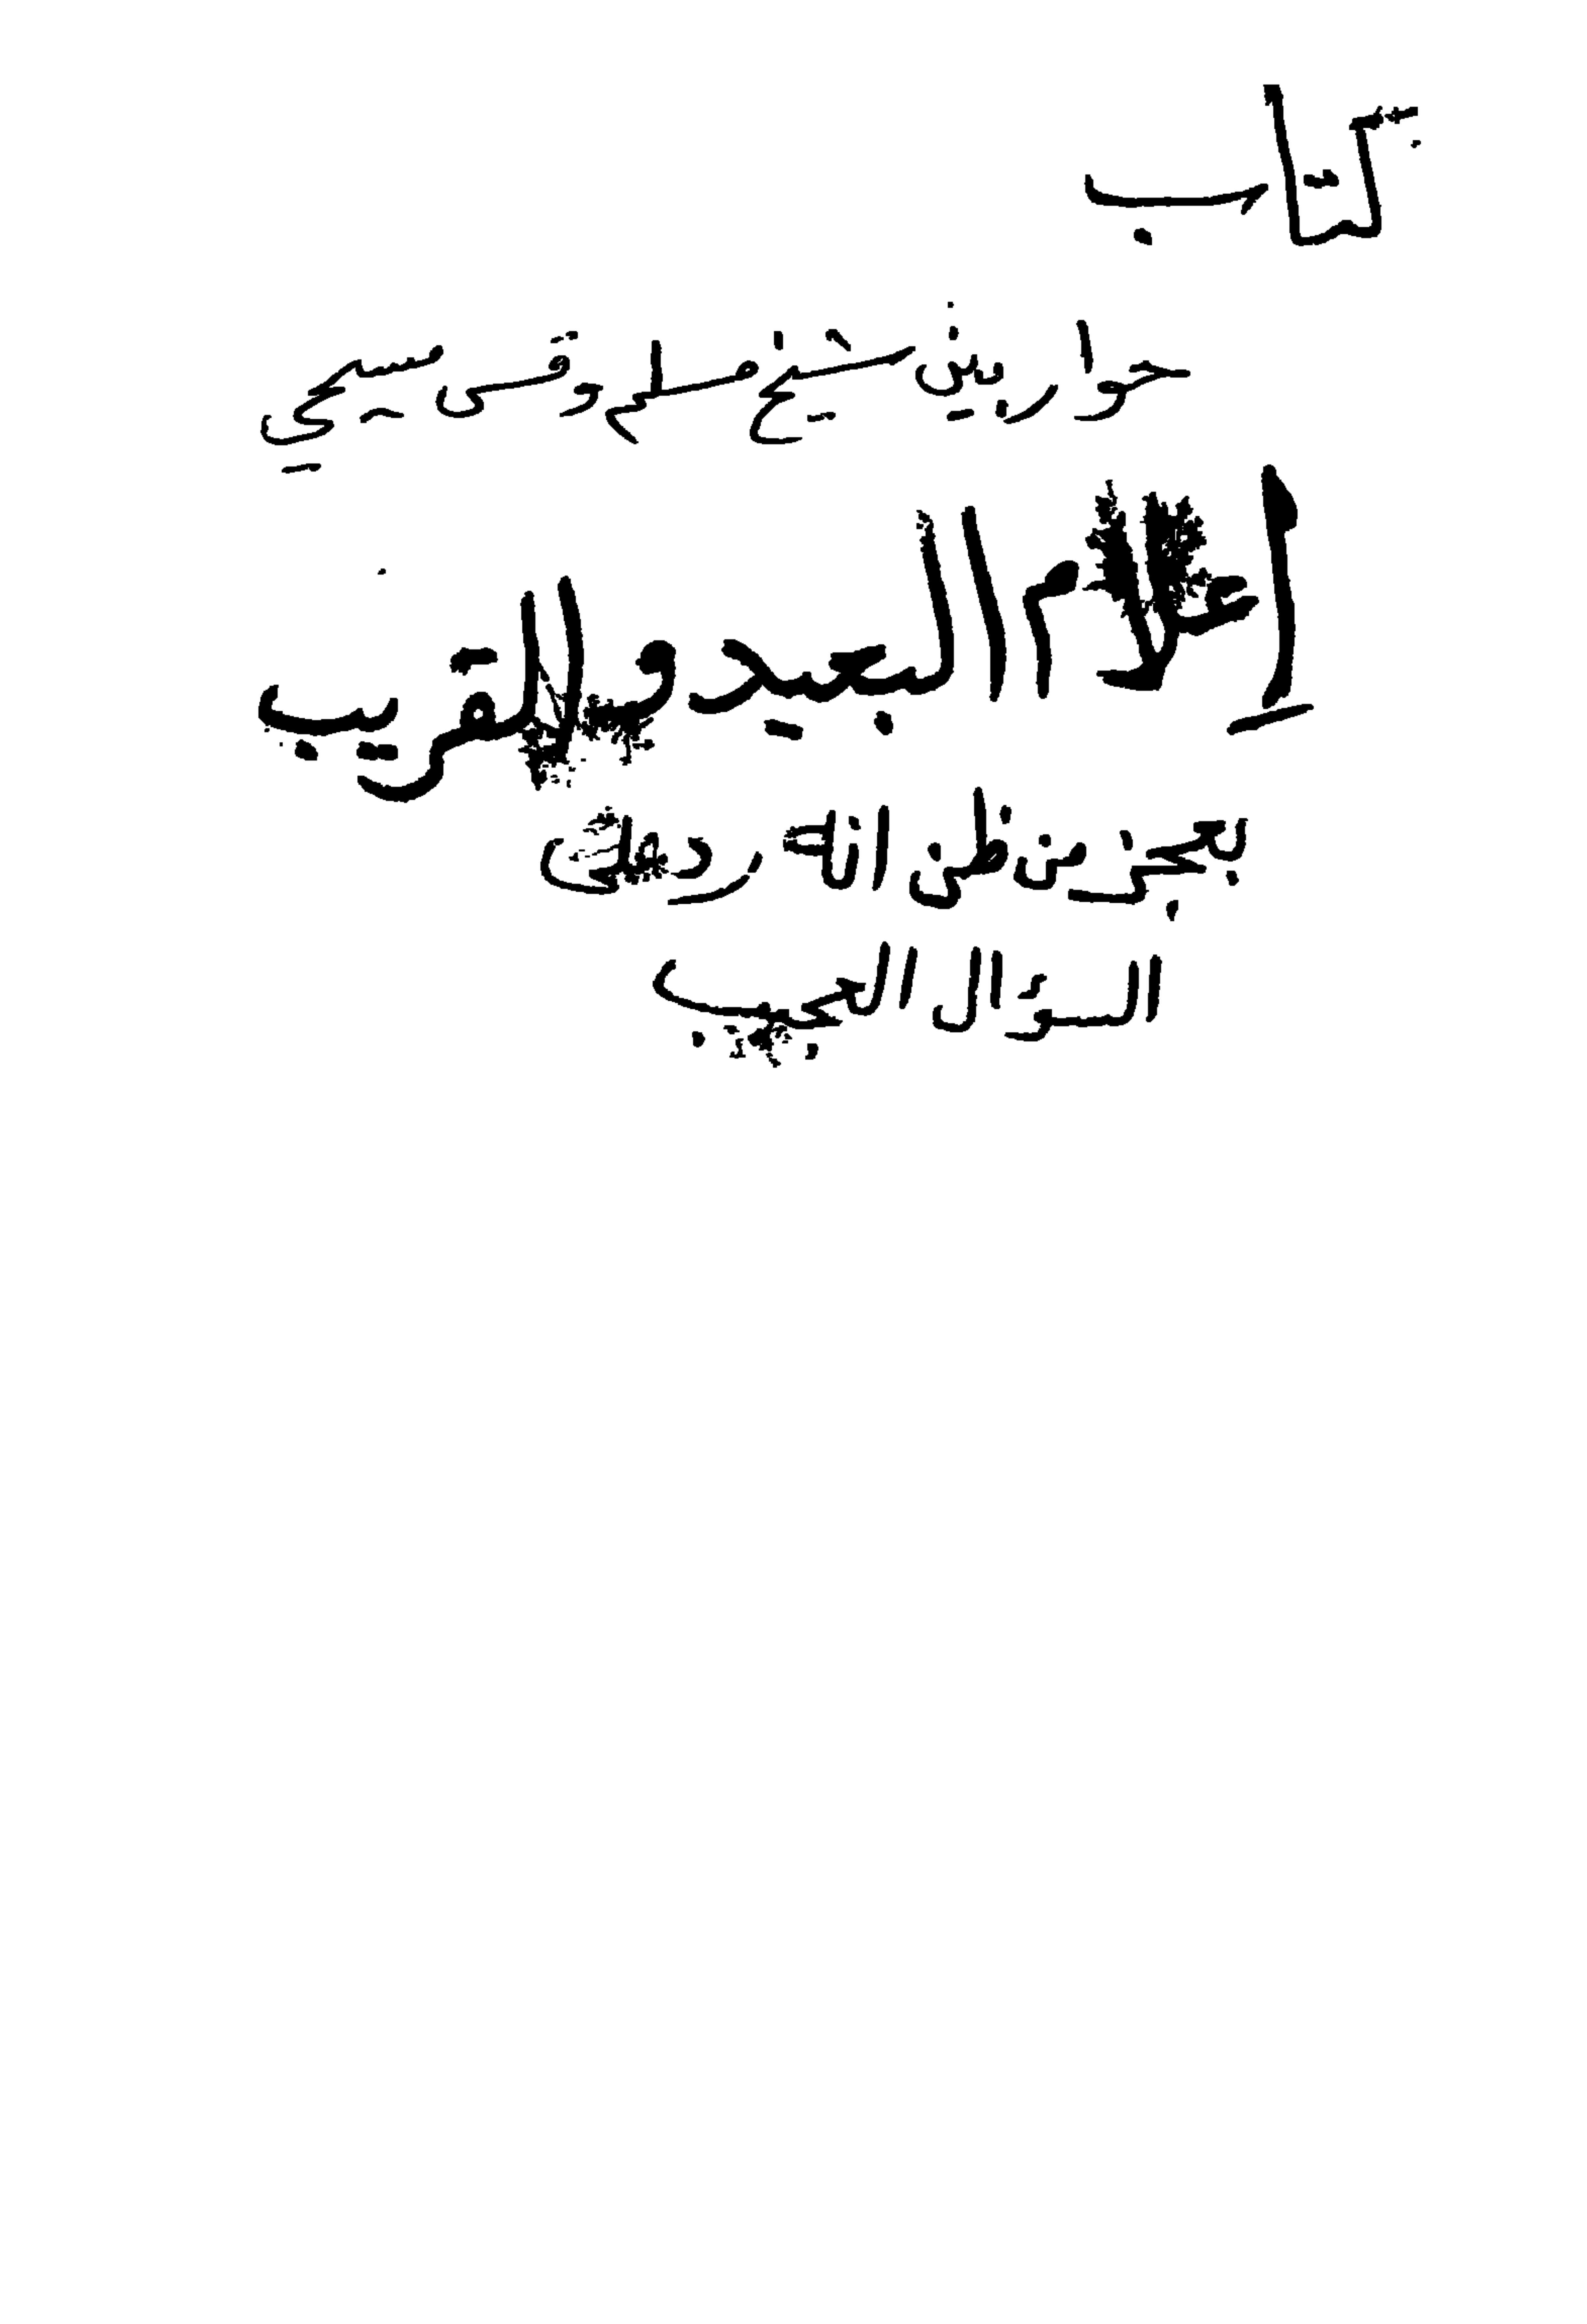 كتاب
حوار بين شيخ مسلم وقس مسيحي
إعلام البعيد والقريب
بعجز من ظن انه رد على
السؤال العجيب